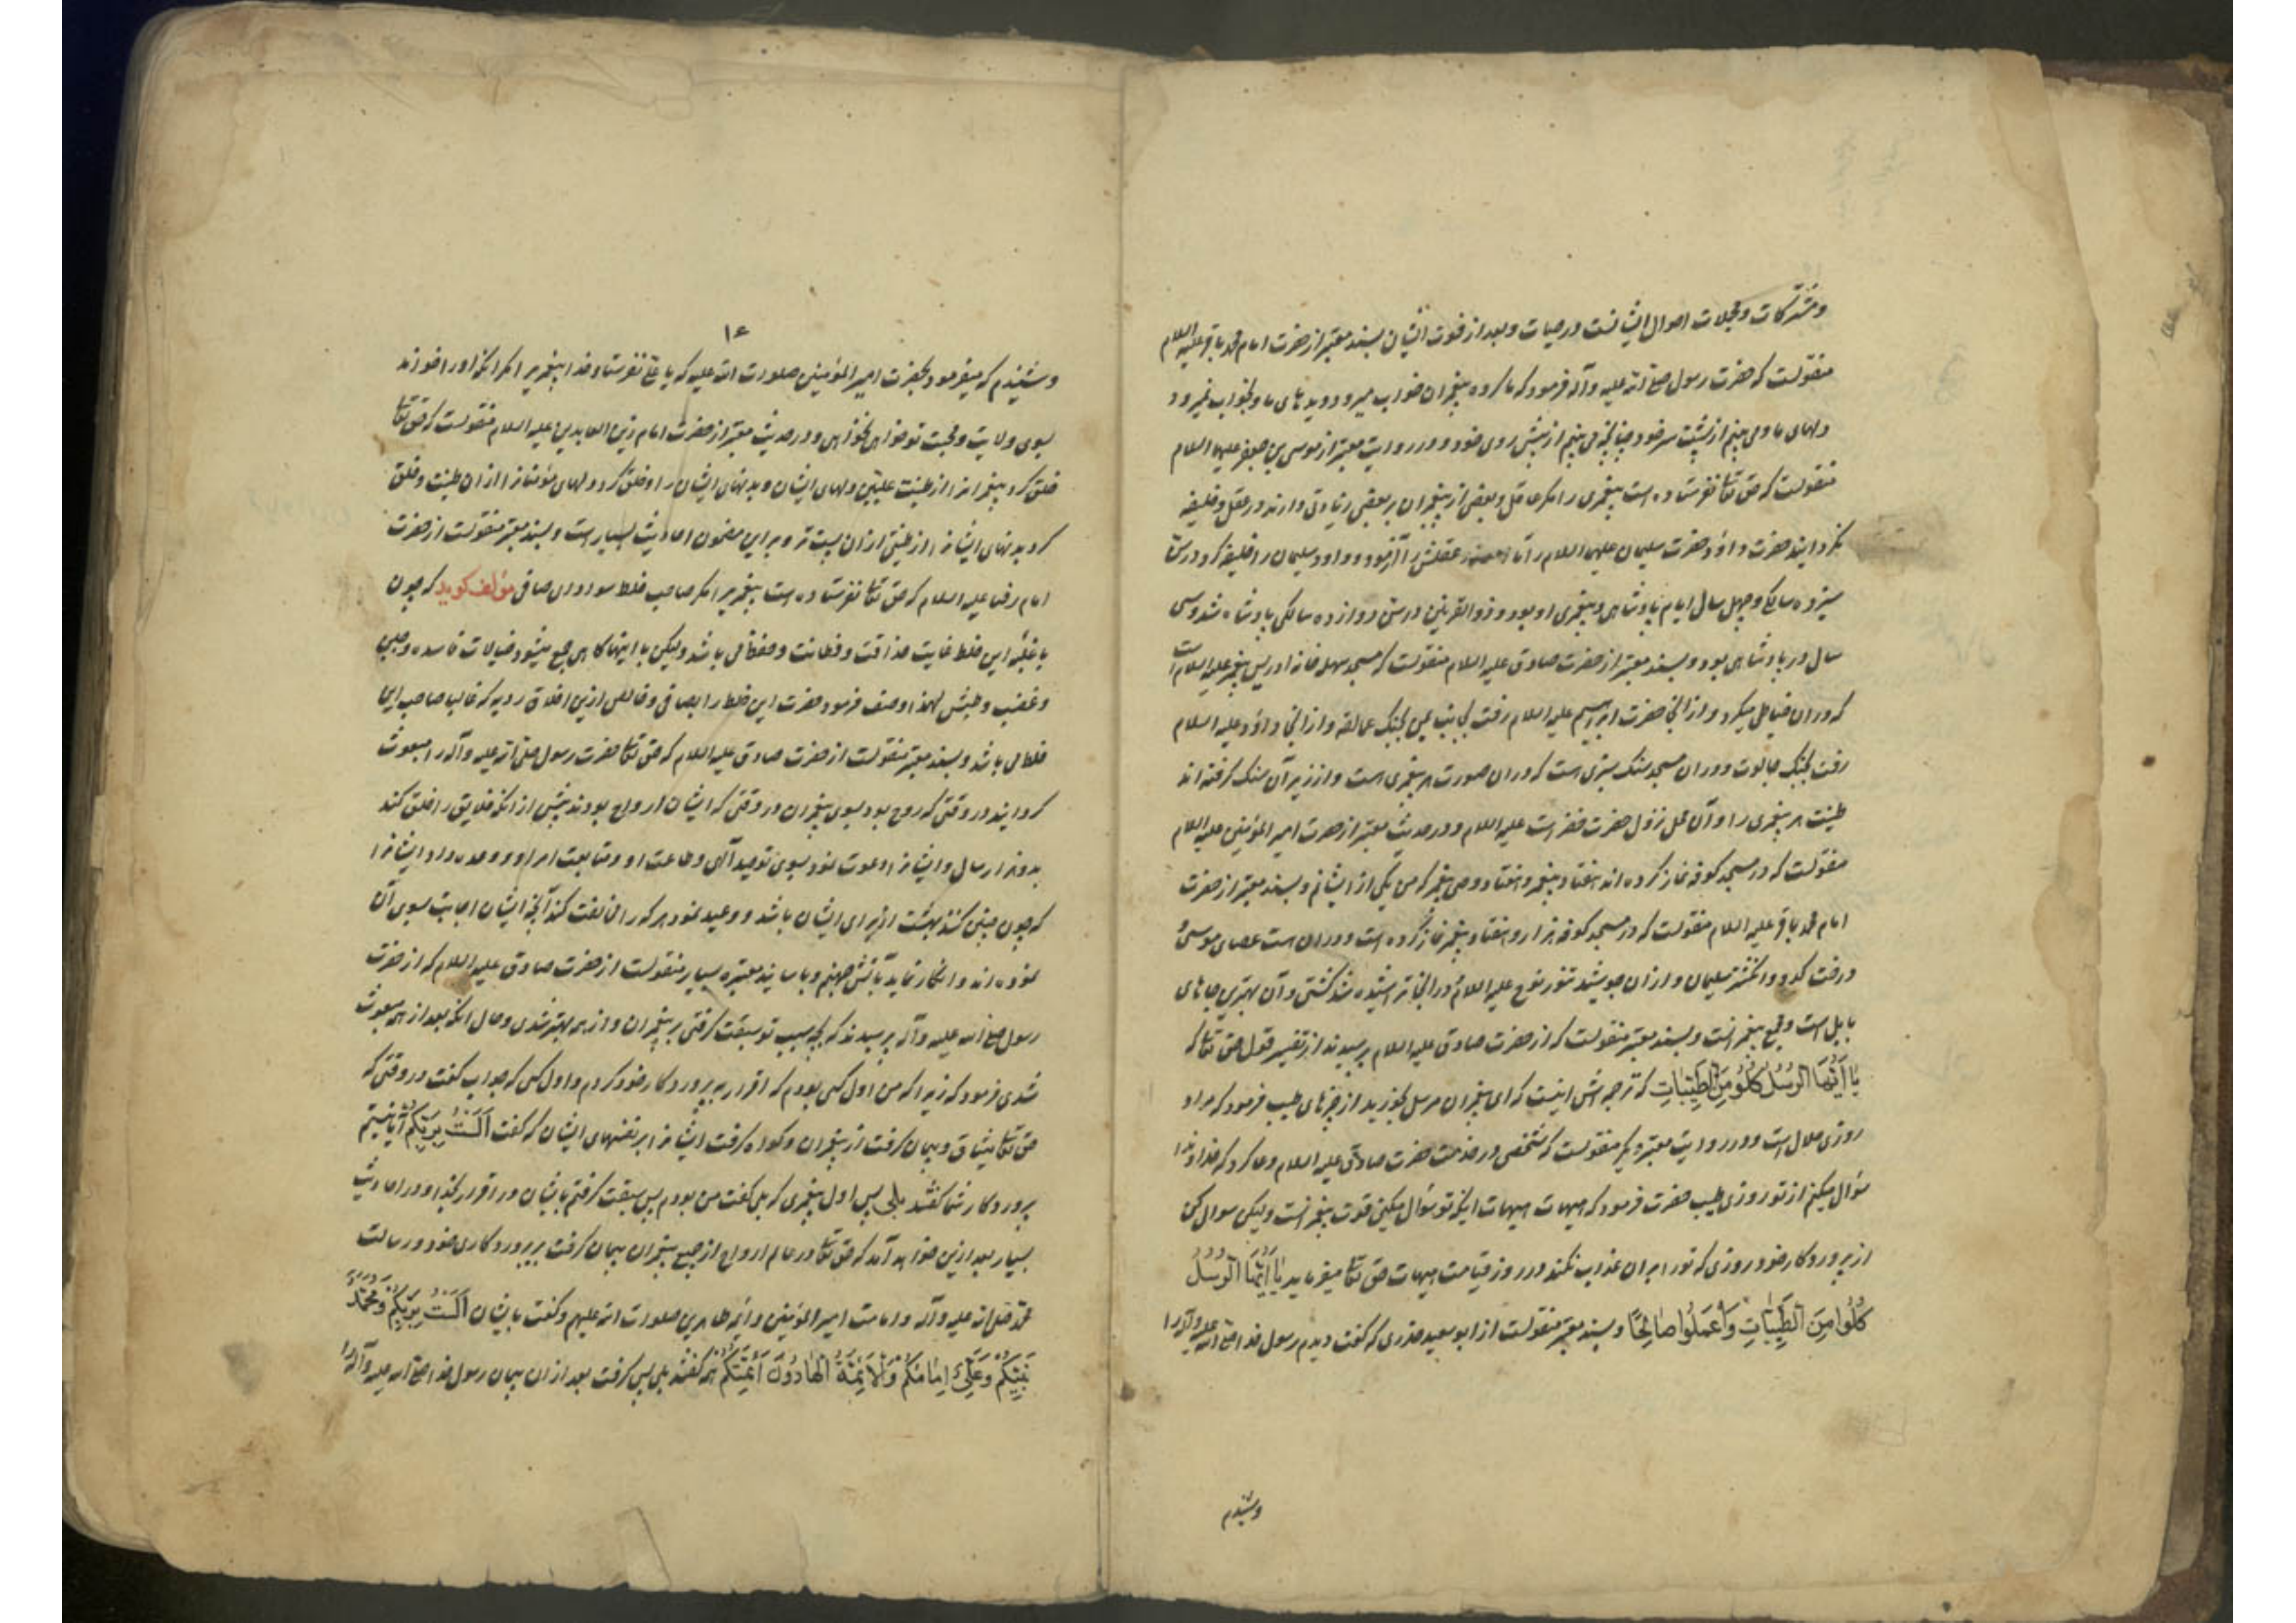 و مشترکات و مجملات احوال ایشانست در حیات و بعد از فوت ایشان بسند معتبر از حضرت امام محمد باقر علیه السلام
منقولست که حضرت رسول صلی الله علیه و آله فرمود که ما گروه پیغمبران خواب میرود دیدهای ما و بخواب نمیرود
دلهای ما و می بینم از پشت سر خود چنانچه می بینم از پیش روی خود و در روایت معتبر از موسی بن جعفر علیهما السلام
منقولست که حق تعالی نفرستاده است پیغمبری را مگر عاقل و بعضی از پیغمبران بر بعضی زیادتی دارند در عقل و خلیفه
نگردانید حضرت داود حضرت سلیمان علیهما السلام را تا عقلش را آزمود و داود سلیمان را خلیفه کرد در سن
سیزده سالگی و چهل سال ایام پادشاهی و پیغمبری او بود و ذوالقرنین در سن دوازده سالگی پادشاه شد و سی
سال در پادشاهی بود و بسند معتبر از حضرت صادق علیه السلام منقولست که مسجد سهله خانه ادریس پیغمبر علیه السلام است
که در ان خیاطی میکرد و از انجا حضرت ابراهیم علیه السلام رفت بجانب یمن بجنک عمالقه و از انجا داود علیه السلام
رفت بجنک جالوت و در ان مسجد سنک سبزی است که در ان صورت هر پیغمبری است و از زیر آن سنک گرفته اند
طینت هر پیغمبری را و آن محل نزول حضرت خضر است علیه السلام و در حدیث معتبر از حضرت امیر المؤمنین علیه السلام
منقولست که در مسجد کوفه نماز کرده اند هفتاد پیغمبر و هفتاد وصی پیغمبر که من یکی از ایشانم و بسند معتبر از حضرت
امام محمد باقر علیه السلام منقولست که در مسجد کوفه هزار و هفتاد پیغمبر نماز کرده است و در ان است عصای موسی
و درخت کدو و انکشتر سلیمان و از ان جوشید تنور نوح علیه السلام و در انجا تراشیده شد کشتی و آن بهترین جاهای
بابل است و مجمع پیغمبرانست و بسند معتبر منقولست که از حضرت صادق علیه السلام پرسیدند از تفسیر قول حق تعالی که
یٰا اَیُّهَا الرُّسُلُ کُلُوا مِنَ الطَّیِّبٰاتِ که ترجمه اش اینست که ای پیغمبران مرسل بخورید از چیزهای طیب فرمود که مراد
روزی حلال است و در روایت معتبر دیگر منقولست که شخصی در خدمت حضرت صادق علیه السلام دعا کرد که خداوندا
سؤال میکنم از تو روزی طیب حضرت فرمود که هیهات هیهات اینکه تو سؤال میکنی قوت پیغمبرانست ولیکن سوال کن
از پروردکار خود روزی که تو را بر ان عذاب نکند در روز قیامت هیهات حق تعالی میفرماید یٰا اَیُّهَا الرُّسُلُ
کُلُوا مِنَ الطَّیِّبٰاتِ وَاعْمَلُوا صٰالِحًا و بسند معتبر منقولست از ابو سعید خدری که گفت دیدم رسول خدا صلی الله علیه و آله را
وشنیدم
۱۴
و شنیدم که میفرمود بحضرت امیر المؤمنین صلوات الله علیه که یا علی نفرستاد خدا پیغمبری را مگر انکه او را خواند
بسوی ولایت و محبت تو خواهی نخواهی و در حدیث معتبر از حضرت امام زین العابدین علیه السلام منقولست که حق تعالی
خلق کرد پیغمبرانرا از طینت علیین دلهای ایشان و بدنهای ایشان را و خلق کرد دلهای مؤمنانرا از ان طینت و خلق
کرد بدنهای ایشانرا از طینتی از ان پست تر و بر این مضمون احادیث بسیار است و بسند معتبر منقولست از حضرت
امام رضا علیه السلام که حق تعالی نفرستاده است پیغمبری را مگر صاحب خلط سودای صافی مؤلف کوید که چون
با غلبه این خلط غایت حذاقت و فطانت و حفظ می باشد ولیکن با اینها کاهی جمع میشود خیالات فاسده و جبن
و غضب و طیش لهذا وصف فرمود حضرت این خلط را بصافی و خالص ازین اخلاق ردیه که غالب صاحب این
خلط می باشد و بسند معتبر منقولست از حضرت صادق علیه السلام که حق تعالی حضرت رسول صلی الله علیه و آله را مبعوث
کردانید در وقتی که روح بود بسوی پیغمبران در وقتی که ایشان ارواح بودند پیش از انکه خلایق را خلق کند
بدو هزار سال و ایشانرا دعوت نمود بسوی توحید آلهی و طاعت او و متابعت امر او و وعده داد ایشانرا
که چون چنین کنند بهشت از برای ایشان باشد و وعید نمود هر که را مخالفت کند آنچه ایشان اجابت بسوی آن
نموده اند و انکار نماید بآتش جهنم و باسانید معتبره بسیار منقولست از حضرت صادق علیه السلام که از حضرت
رسول صلی الله علیه و آله پرسیدند که بچه سبب تو سبقت کرفتی بر پیغمبران و از همه بهتر شدی و حال انکه بعد از همه مبعوث
شدی فرمود که زیرا که من اول کسی بودم که اقرار به پروردکار خود کردم و اول کسی که جواب کفت در وقتی که
حق تعالی میثاق و پیمان کرفت از پیغمبران و کواه کرفت ایشانرا بر نفسهای ایشان که کفت اَلَسْتُ بِرَبِّکُمْ آیا نیستم
پروردکار شما کفتند بلی پس اول پیغمبری که بلی کفت من بودم پس سبقت کرفتم بایشان در اقرار بخدا و در احادیث
بسیار بعد ازین خواهد آمد که حق تعالی در عالم ارواح از جمیع پیغمبران پیمان کرفت بر پروردکاری خود و رسالت
محمد صلی الله علیه و آله و امامت امیر المؤمنین و ائمه طاهرین صلوات الله علیهم و کفت بایشان اَلَسْتُ بِرَبِّکُمْ وَمُحَمَّدٌ
نَبِیُّکُمْ وَعَلِیٌّ اِمٰامُکُمْ وَالْاَئِمَّةُ الْهٰادُونَ اَئِمَّتُکُمْ همه کفتند بلی پس کرفت بعد از ان پیمان رسول خدا صلی الله علیه و آله را